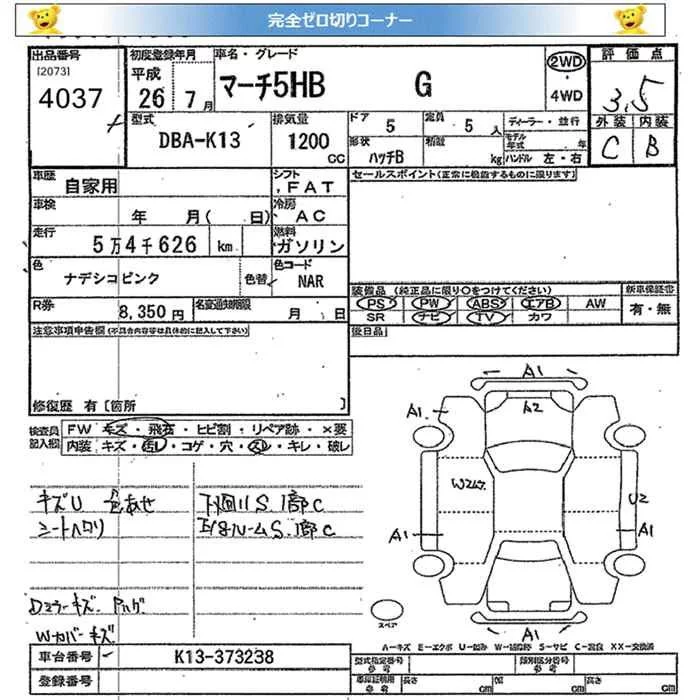 完全ゼロ切りコーナー
出品番号
[2073]
4037
初度登録年月
平成
26 7月
車名・グレード
マーチ5HB G
2WD
・4WD
評価点
3.5
外装 内装
C B
型式
DBA-K13
排気量
1200
CC
ドア
5
定員
5 人
ディーラー・並行
モデル年式 年
形状
ハッチB
積載
kg
ハンドル 左・右
車歴
自家用
シフト
FAT
セールスポイント(正常に機能するものに限ります)
車検
年 月( 日)
冷房
AC
走行
5万4千626 km
燃料
ガソリン
色
ナデシコピンク
色替
色コード
NAR
装備品 (純正品に限り○をつけてください)
新車保証書
PS PW ABS エアB AW
有・無
SR ナビ TV カワ
R券
8,350円
名変通知期限
月 日
後日品
注意事項申告欄(不具合内容等は具体的に記入して下さい)
修復歴 有〔箇所 〕
検査員記入欄
FW キズ・飛石・ヒビ割・リペア跡・×要
内装 キズ・汚レ・コゲ・穴・スレ・キレ・破レ
キズU 色あせ
下廻りS.1部C
シートヘタリ
ルームS.1部C
Dミラーキズ
Wカバーキズ
A1
A1
A2
A1
U2
A1
A1
A1
スペア
A－キズ E－エクボ U－凹み W－補修跡 S－サビ C－腐食 XX－交換済
車台番号
K13-373238
登録番号
型式指定番号
参考
類別区分番号
参考
車庫証明用
参考
長さ cm
幅 cm
高さ cm